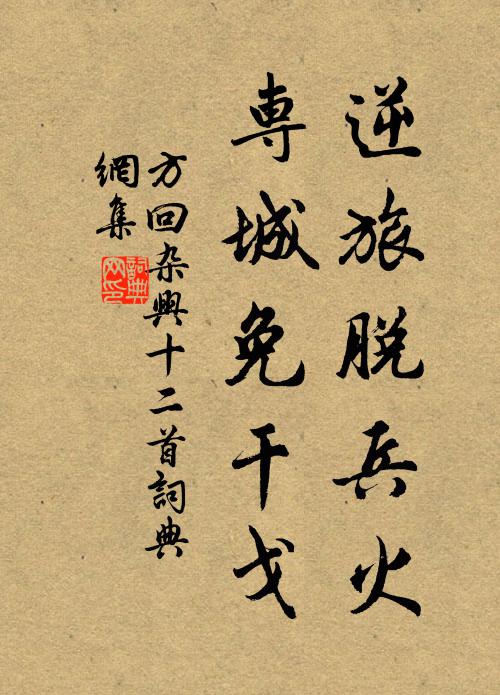 逆旅脱兵火
専城免干戈
方回杂興十二首詞典
網集
詞典
网印